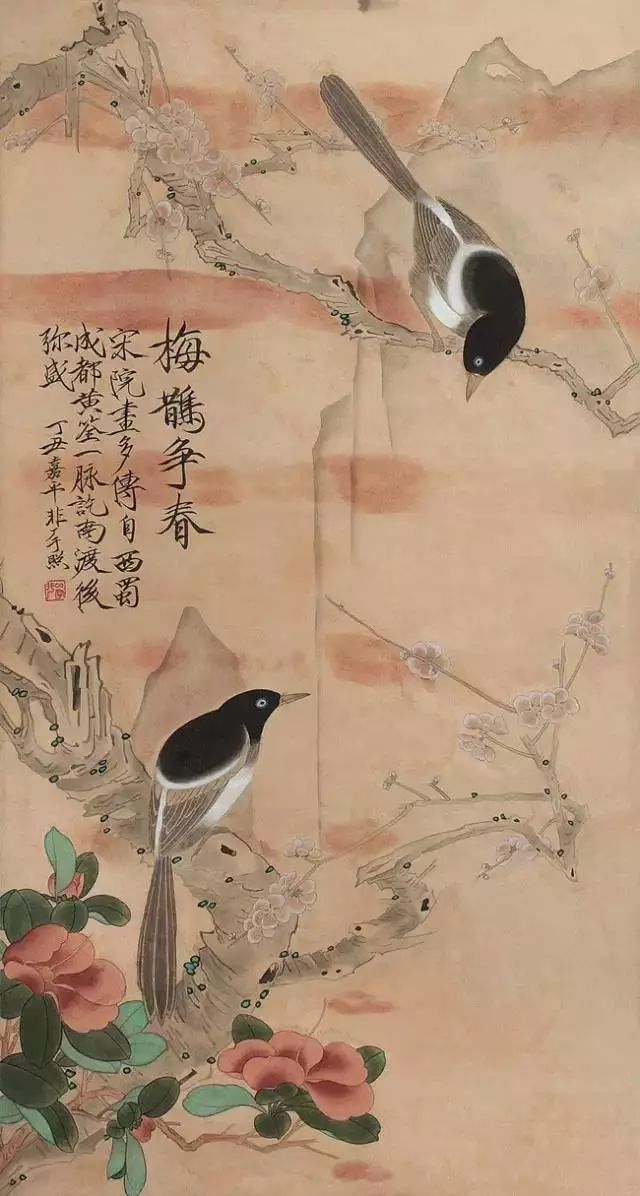 梅鵲争春
宋院畫多傳自西蜀
成都黄筌一脉訖南渡後
弥盛
丁丑嘉平非子照